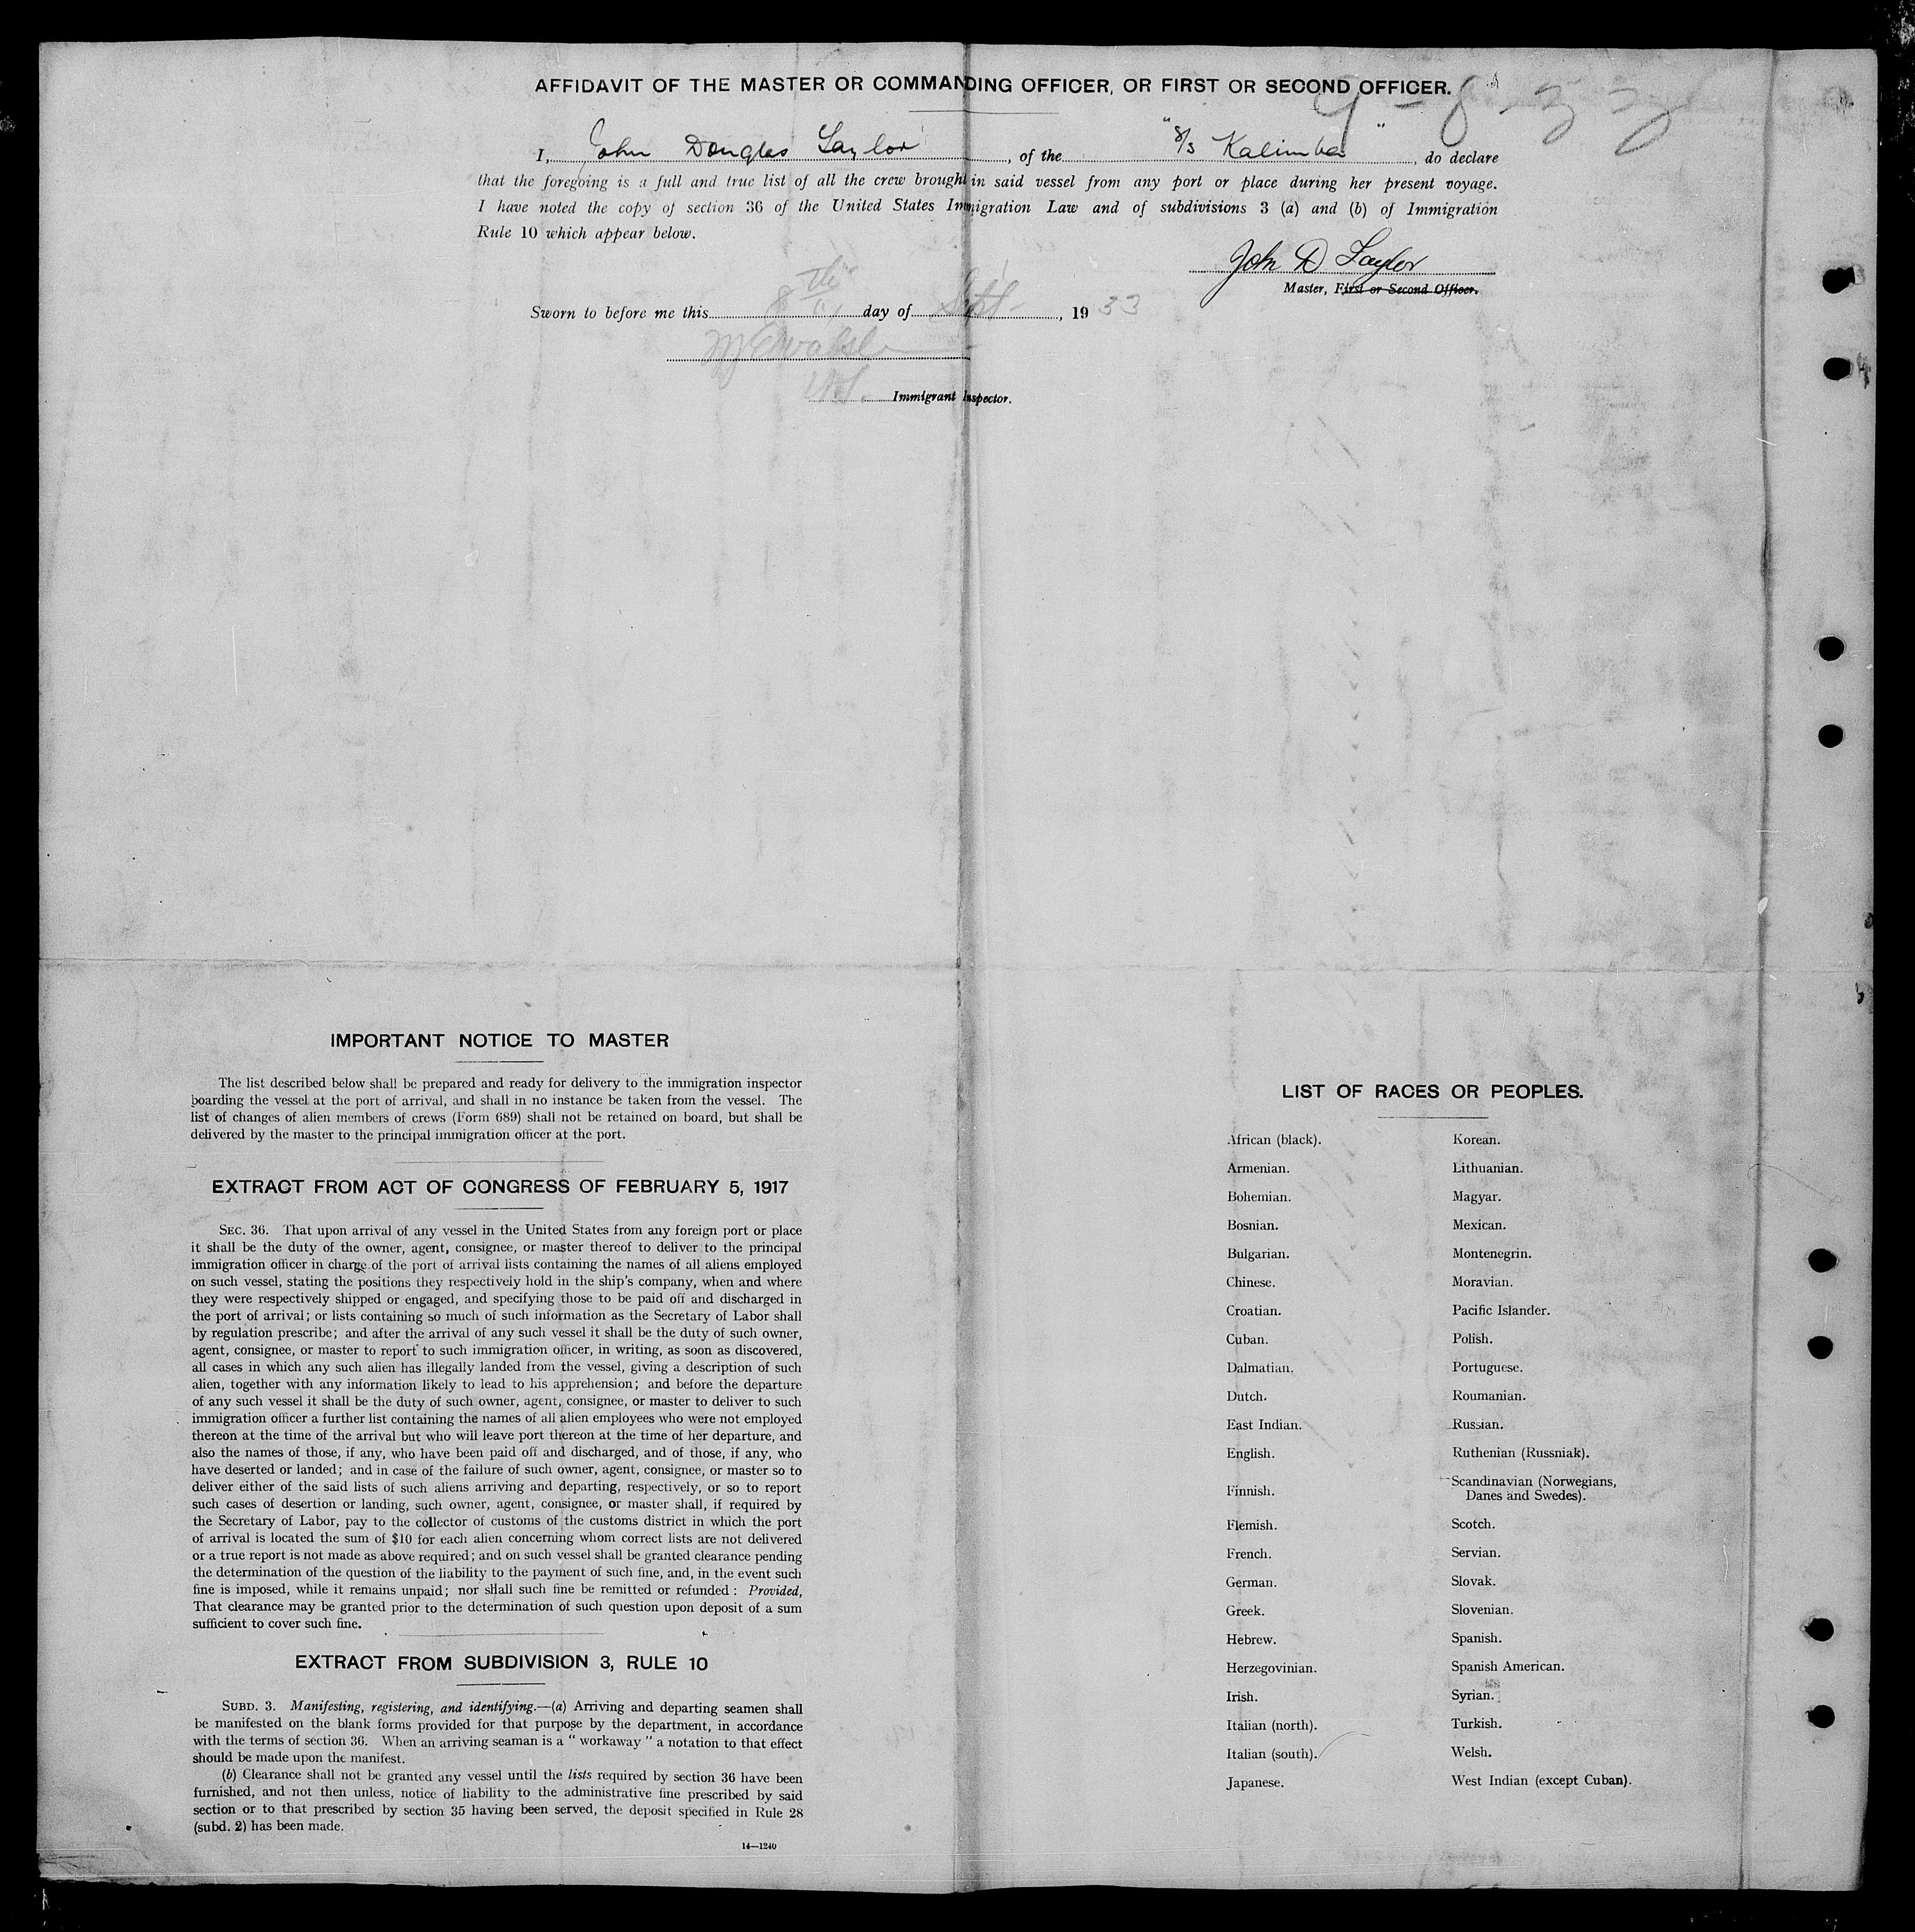 AFFIDAVIT OF THE MASTER OR COMMANDING OFFICER, OR FIRST OR SECOND OFFICER.
9-8-33
I, John Douglas Taylor, of the "S/S Kalimba", do declare
that the foregoing is a full and true list of all the crew brought in said vessel from any port or place during her present voyage.
I have noted the copy of section 36 of the United States Immigration Law and of subdivisions 3 (a) and (b) of Immigration
Rule 10 which appear below.
John D Taylor
Master, First or Second Officer.
Sworn to before me this 8th day of Sept, 1933
Immigrant Inspector.
IMPORTANT NOTICE TO MASTER
The list described below shall be prepared and ready for delivery to the immigration inspector
boarding the vessel at the port of arrival, and shall in no instance be taken from the vessel. The
list of changes of alien members of crews (Form 689) shall not be retained on board, but shall be
delivered by the master to the principal immigration officer at the port.
EXTRACT FROM ACT OF CONGRESS OF FEBRUARY 5, 1917
SEC. 36. That upon arrival of any vessel in the United States from any foreign port or place
it shall be the duty of the owner, agent, consignee, or master thereof to deliver to the principal
immigration officer in charge of the port of arrival lists containing the names of all aliens employed
on such vessel, stating the positions they respectively hold in the ship's company, when and where
they were respectively shipped or engaged, and specifying those to be paid off and discharged in
the port of arrival; or lists containing so much of such information as the Secretary of Labor shall
by regulation prescribe; and after the arrival of any such vessel it shall be the duty of such owner,
agent, consignee, or master to report to such immigration officer, in writing, as soon as discovered,
all cases in which any such alien has illegally landed from the vessel, giving a description of such
alien, together with any information likely to lead to his apprehension; and before the departure
of any such vessel it shall be the duty of such owner, agent, consignee, or master to deliver to such
immigration officer a further list containing the names of all alien employees who were not employed
thereon at the time of the arrival but who will leave port thereon at the time of her departure, and
also the names of those, if any, who have been paid off and discharged, and of those, if any, who
have deserted or landed; and in case of the failure of such owner, agent, consignee, or master so to
deliver either of the said lists of such aliens arriving and departing, respectively, or so to report
such cases of desertion or landing, such owner, agent, consignee, or master shall, if required by
the Secretary of Labor, pay to the collector of customs of the customs district in which the port
of arrival is located the sum of $10 for each alien concerning whom correct lists are not delivered
or a true report is not made as above required; and on such vessel shall be granted clearance pending
the determination of the question of the liability to the payment of such fine, and, in the event such
fine is imposed, while it remains unpaid; nor shall such fine be remitted or refunded: Provided,
That clearance may be granted prior to the determination of such question upon deposit of a sum
sufficient to cover such fine.
EXTRACT FROM SUBDIVISION 3, RULE 10
SUBD. 3. Manifesting, registering, and identifying.—(a) Arriving and departing seamen shall
be manifested on the blank forms provided for that purpose by the department, in accordance
with the terms of section 36. When an arriving seaman is a "workaway" a notation to that effect
should be made upon the manifest.
(b) Clearance shall not be granted any vessel until the lists required by section 36 have been
furnished, and not then unless, notice of liability to the administrative fine prescribed by said
section or to that prescribed by section 35 having been served, the deposit specified in Rule 28
(subd. 2) has been made.
14—1240
LIST OF RACES OR PEOPLES.
African (black).
Armenian.
Bohemian.
Bosnian.
Bulgarian.
Chinese.
Croatian.
Cuban.
Dalmatian.
Dutch.
East Indian.
English.
Finnish.
Flemish.
French.
German.
Greek.
Hebrew.
Herzegovinian.
Irish.
Italian (north).
Italian (south).
Japanese.
Korean.
Lithuanian.
Magyar.
Mexican.
Montenegrin.
Moravian.
Pacific Islander.
Polish.
Portuguese.
Roumanian.
Russian.
Ruthenian (Russniak).
Scandinavian (Norwegians,
Danes and Swedes).
Scotch.
Servian.
Slovak.
Slovenian.
Spanish.
Spanish American.
Syrian.
Turkish.
Welsh.
West Indian (except Cuban).